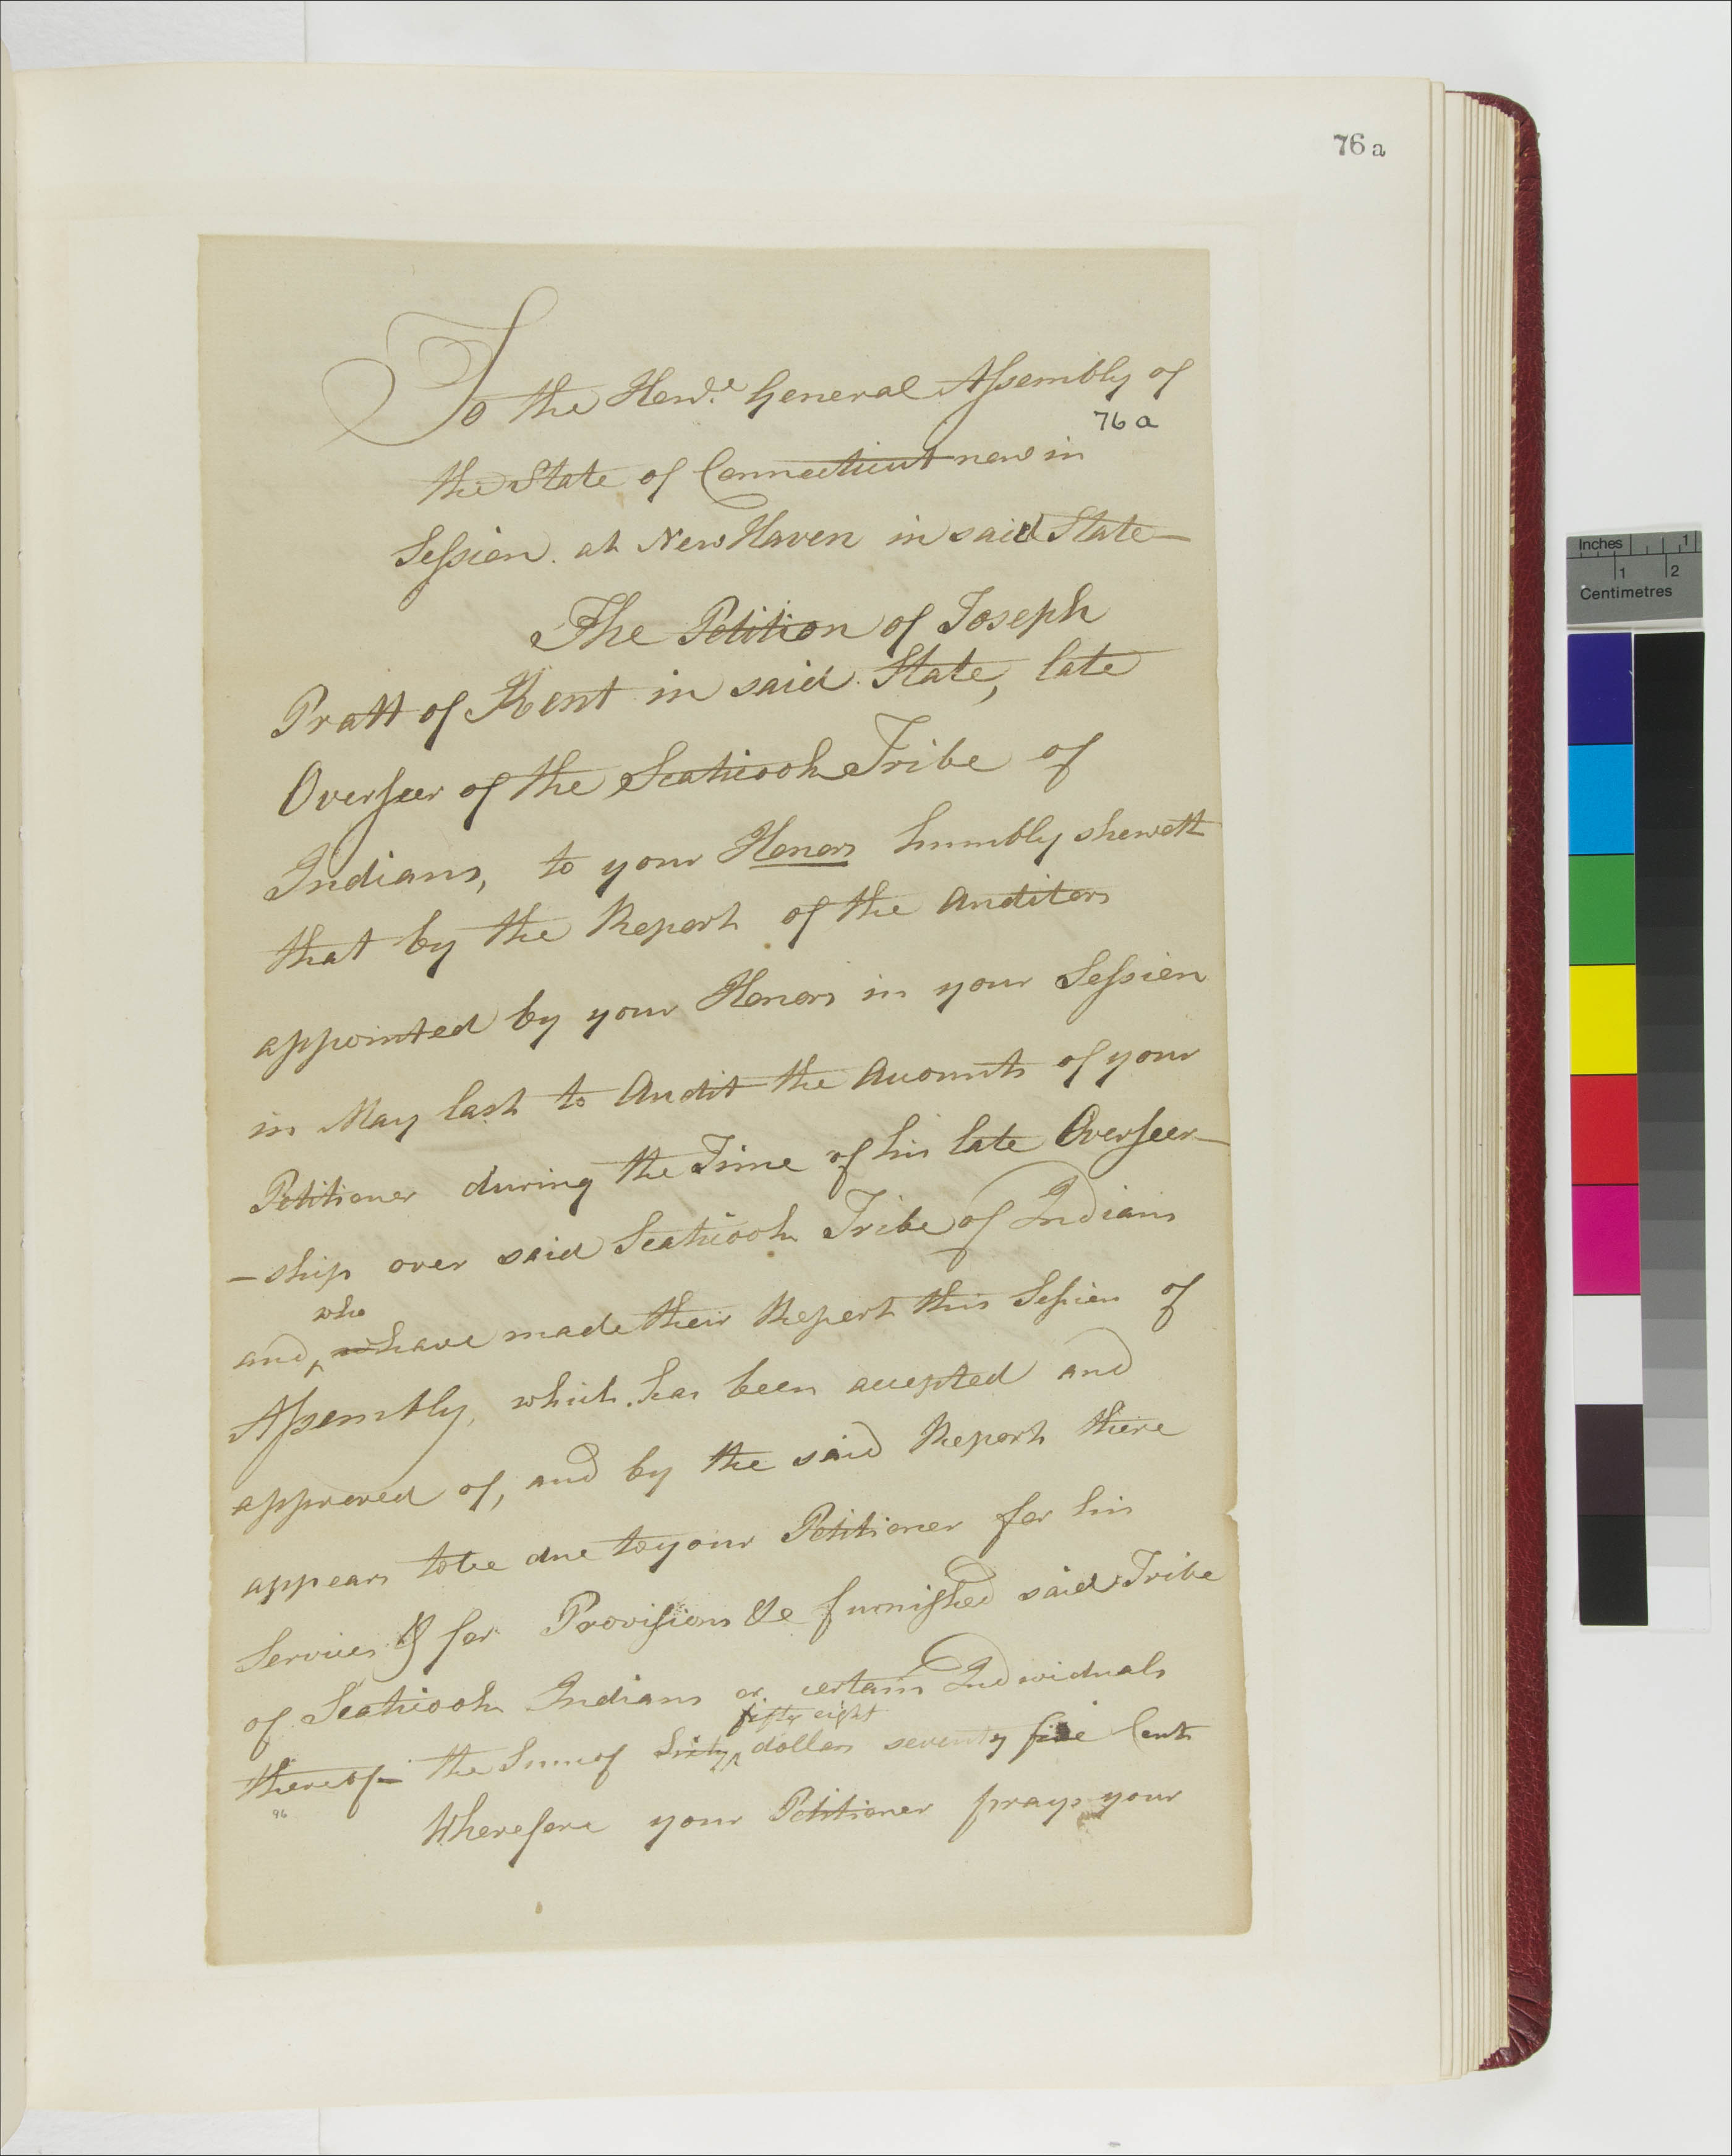 76 a
To the Hon.le General Assembly of
76 a
the State of Connecticut now in
Session at New Haven in said State—
The Petition of Joseph
Pratt of Kent in said State, late
Overseer of the Scaticook Tribe of
Indians, to your Honors humbly sheweth
that by the Report of the Auditors
appointed by your Honors in your Session
in May last to Audit the Accounts of your
Petitioner during the Time of his late Overseer—
—ship over said Scaticook Tribe of Indians
who
and ‸ have made their Report this Session of
Assembly, which has been accepted and
approved of, and by the said Report there
appears to be due to your Petitioner for his
Services & for Provisions &c furnished said Tribe
of Scaticook Indians or certain Individuals
fifty eight
thereof— the Sum of Sixty ‸ dollars seventy five Cents
96
Wherefore your Petitioner prays your
Inches 1
1 2
Centimetres